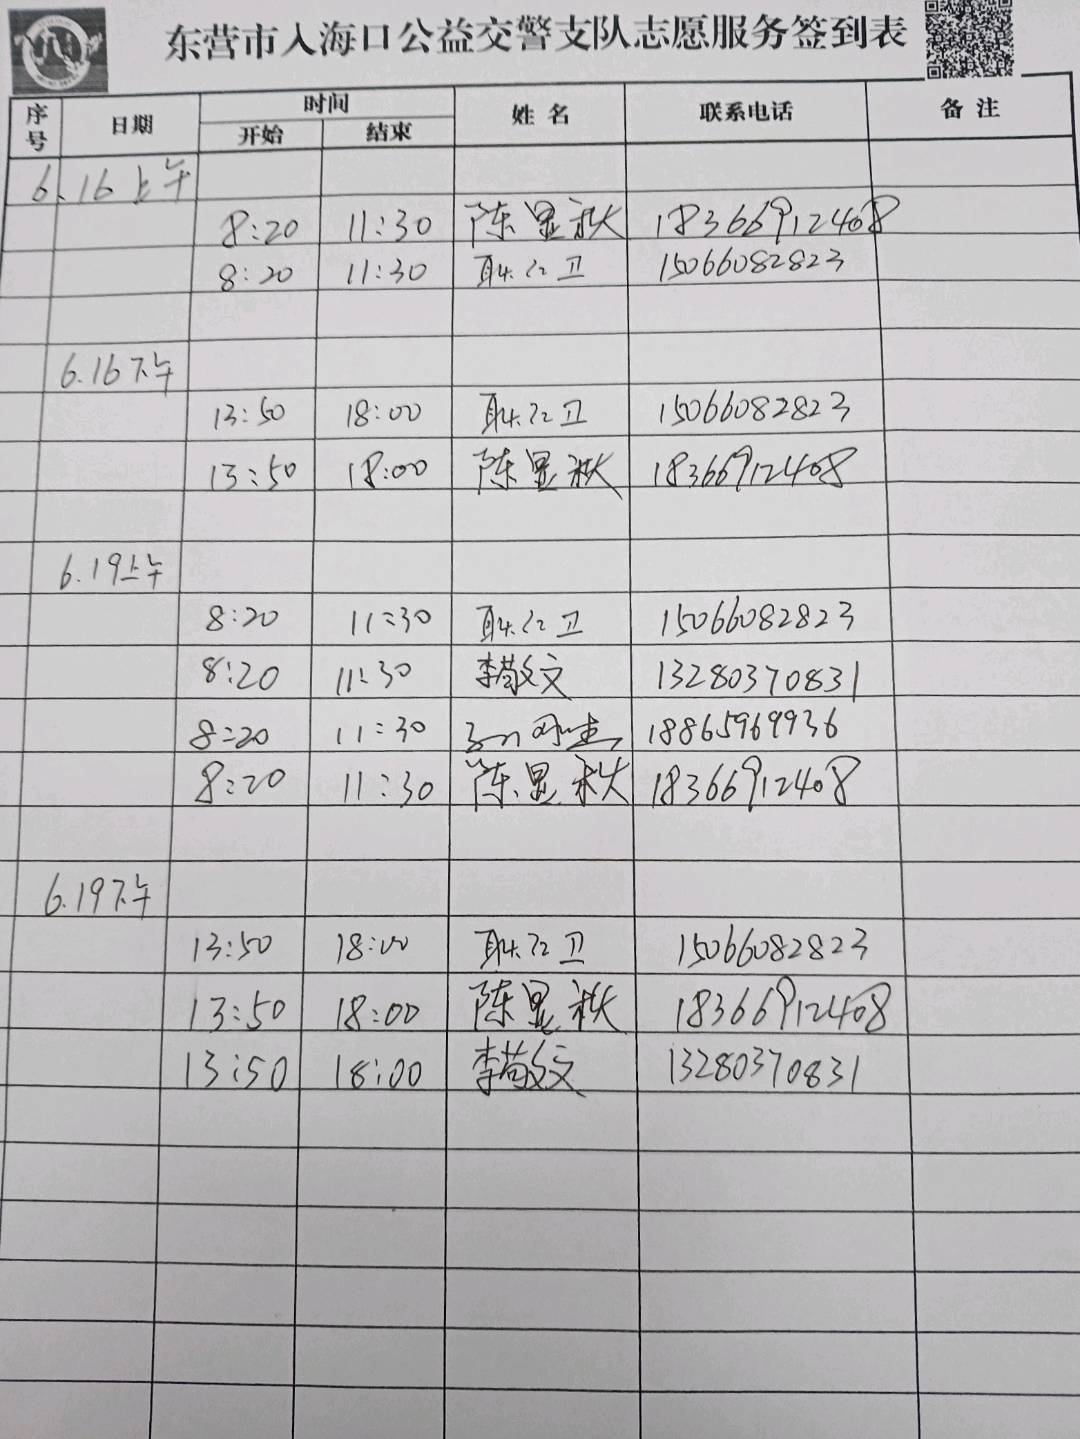 东营市入海口公益交警支队志愿服务签到表
序号 日期 时间 姓名 联系电话 备注
开始 结束
6.16上午
8:20 11:30 陈显秋 18366912408
8:20 11:30 耿红卫 15066082823
6.16下午
13:50 18:00 耿红卫 15066082823
13:50 18:00 陈显秋 18366912408
6.19上午
8:20 11:30 耿红卫 15066082823
8:20 11:30 李敬文 13280370831
8:20 11:30 18865969936
8:20 11:30 陈显秋 18366912408
6.19下午
13:50 18:00 耿红卫 15066082823
13:50 18:00 陈显秋 18366912408
13:50 18:00 李敬文 13280370831